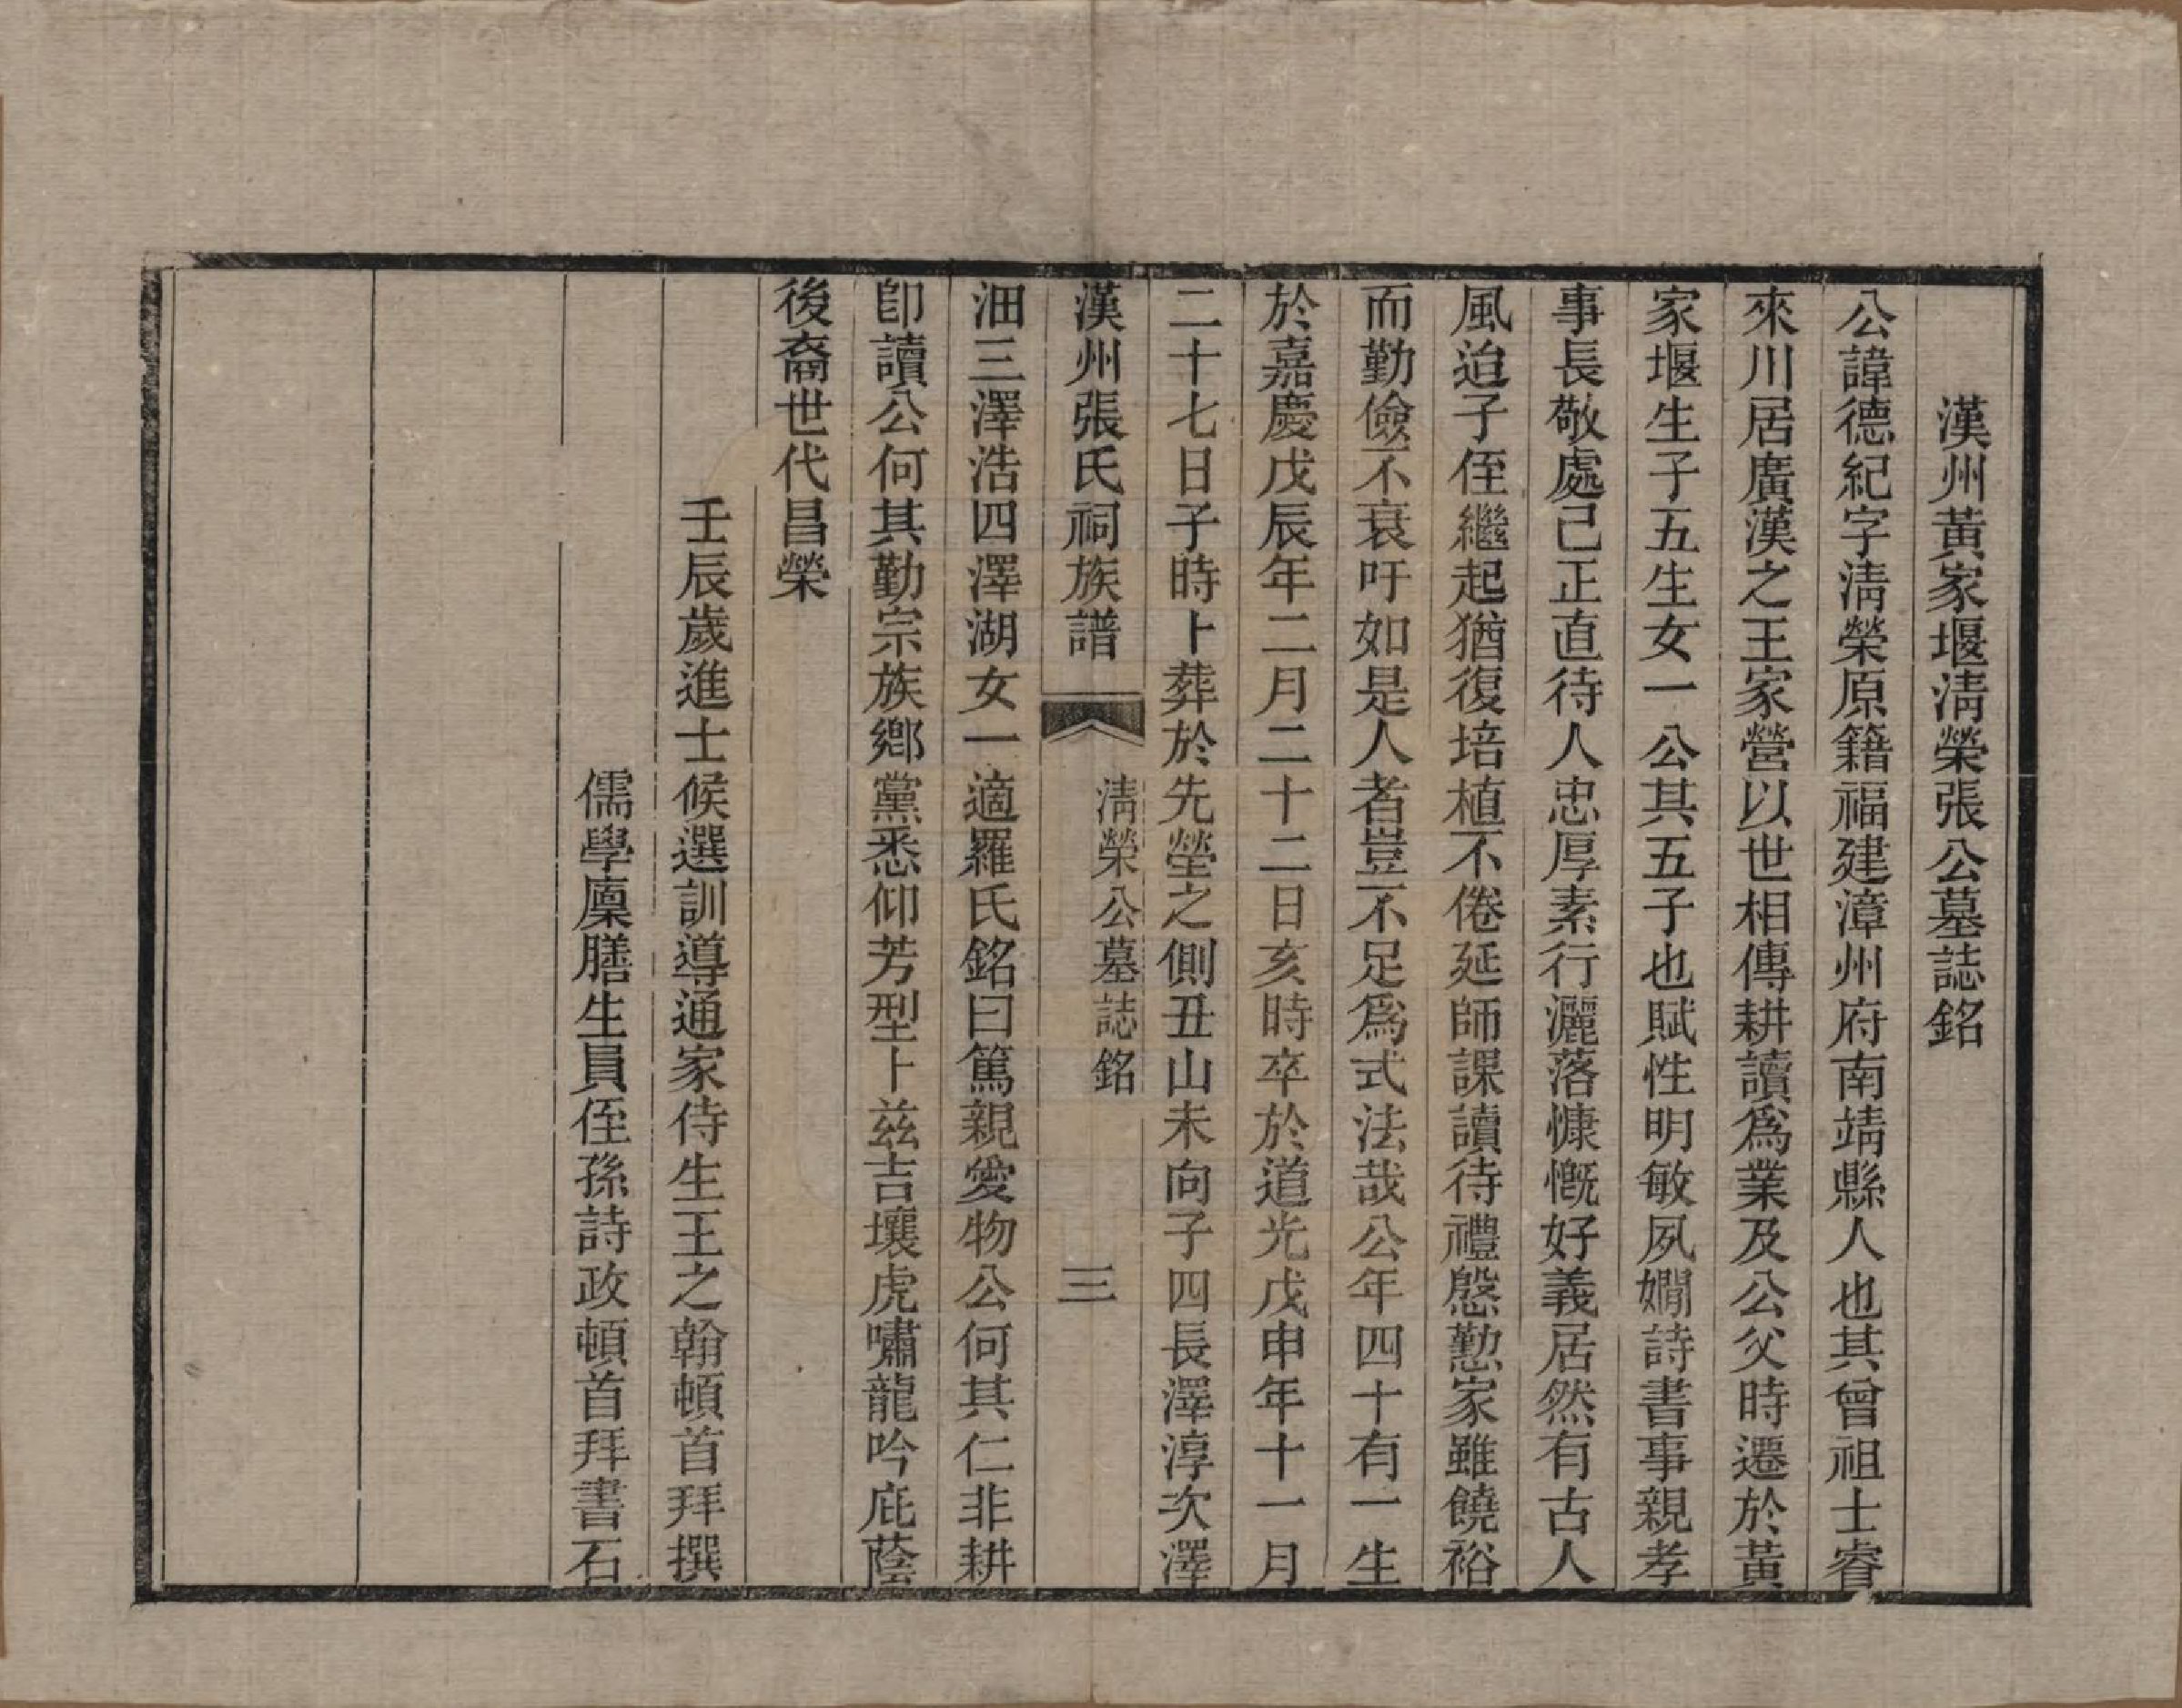 漢州黃家堰淸榮張公墓誌銘
公諱德紀字淸榮原籍福建漳州府南靖縣人也其曾祖士睿
來川居廣漢之王家營以世相傳耕讀爲業及公父時遷於黃
家堰生子五生女一公其五子也賦性明敏夙嫺詩書事親孝
事長敬處己正直待人忠厚素行灑落慷慨好義居然有古人
風迨子侄繼起猶復培植不倦延師課讀待禮慇懃家雖饒裕
而勤儉不衰吁如是人者豈不足爲式法哉公年四十有一生
於嘉慶戊辰年二月二十二日亥時卒於道光戊申年十一月
二十七日子時卜葬於先塋之側丑山未向子四長澤淳次澤
漢州張氏祠族譜 淸榮公墓誌銘 三
沺三澤浩四澤湖女一適羅氏銘曰篤親愛物公何其仁非耕
卽讀公何其勤宗族鄉黨悉仰芳型卜兹吉壤虎嘯龍吟庇蔭
後裔世代昌榮
壬辰歲進士候選訓導通家侍生王之翰頓首拜撰
儒學廩膳生員侄孫詩政頓首拜書石